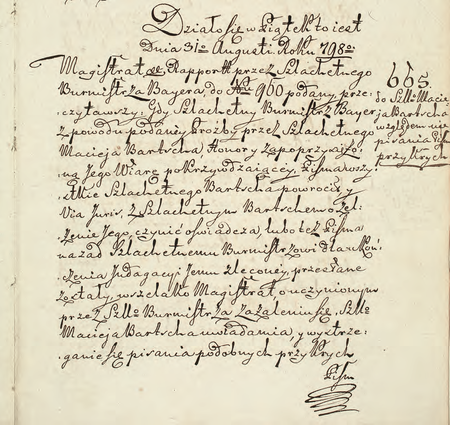 Działo się w Piątek to iest
Dnia 31o Augusti Roku 798o
Magistrat Rapport przez Szlachetnego
Burmistrza Bayera, do Nru 960 podany, prze-
czytawszy; Gdy Szlachetny Burmistrz Bayer
z powodu podaney Proźby przez Szlachetnego
Macieja Bartscha Honor y
na Jego Wiarę pokrzywdzaiącey, Pisma wszy-
stkie Szlachetnego Bartscha powrocić y
Via Juris, z Szlachetnym Bartschem o
Jego, czynić oświadcza, lubo też Pisma
nazad Szlachetnemu Burmistrzowi dla ukoń-
czenia Jndagacyi Jemu zleconey, przesłane
zostały, wszelako Magistrat, o uczynionym
przez Szllo Burmistrza zażaleniu się, Szllo
Macieja Bartscha uwiadamia, y wystrze-
ganie się pisania podobnych przykrych
Pism
665.
do Szllo Macie-
ja Bartscha
względem nie
pisania Pism
przykrych